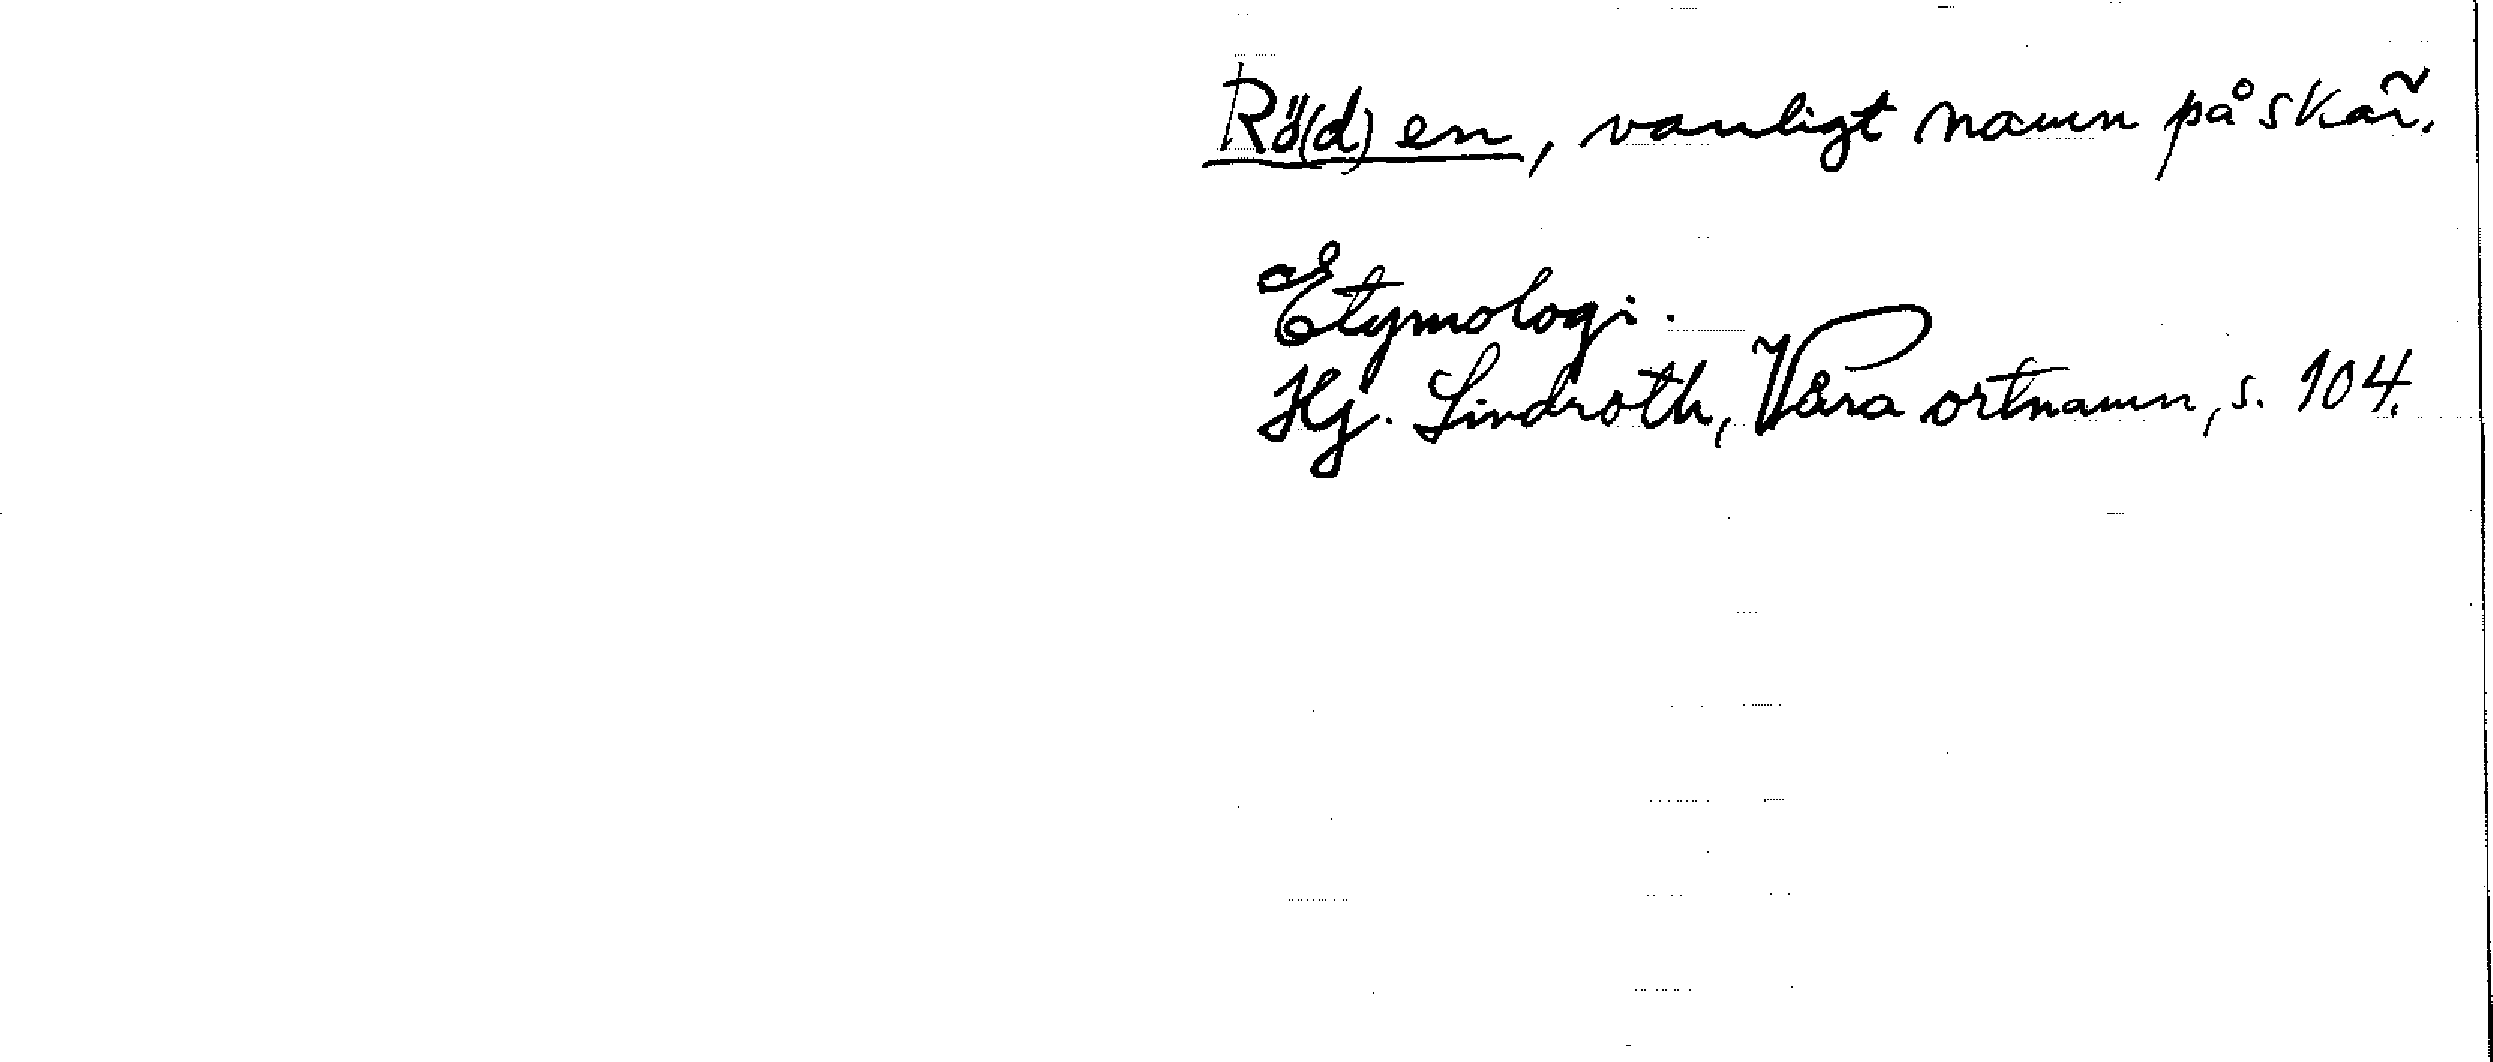 Rö(d)en, vanligt namn på skär.
Etymologi.
Hj. Lindroth, Våra ortnamn, s. 104.